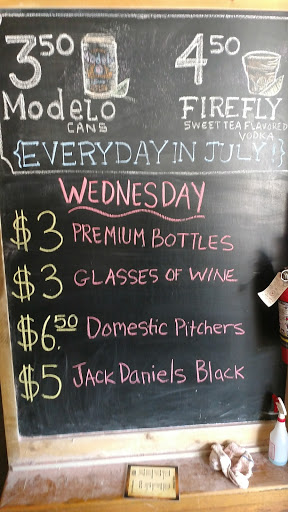 3.50 4.50
Modelo FIREFLY
CANS SWEET TEA FLAVORED
VODKA
{EVERYDAY IN JULY!}
WEDNESDAY
$3 PREMIUM BOTTLES
$3 GLASSES OF WINE
$6.50 Domestic Pitchers
$5 Jack Daniels Black